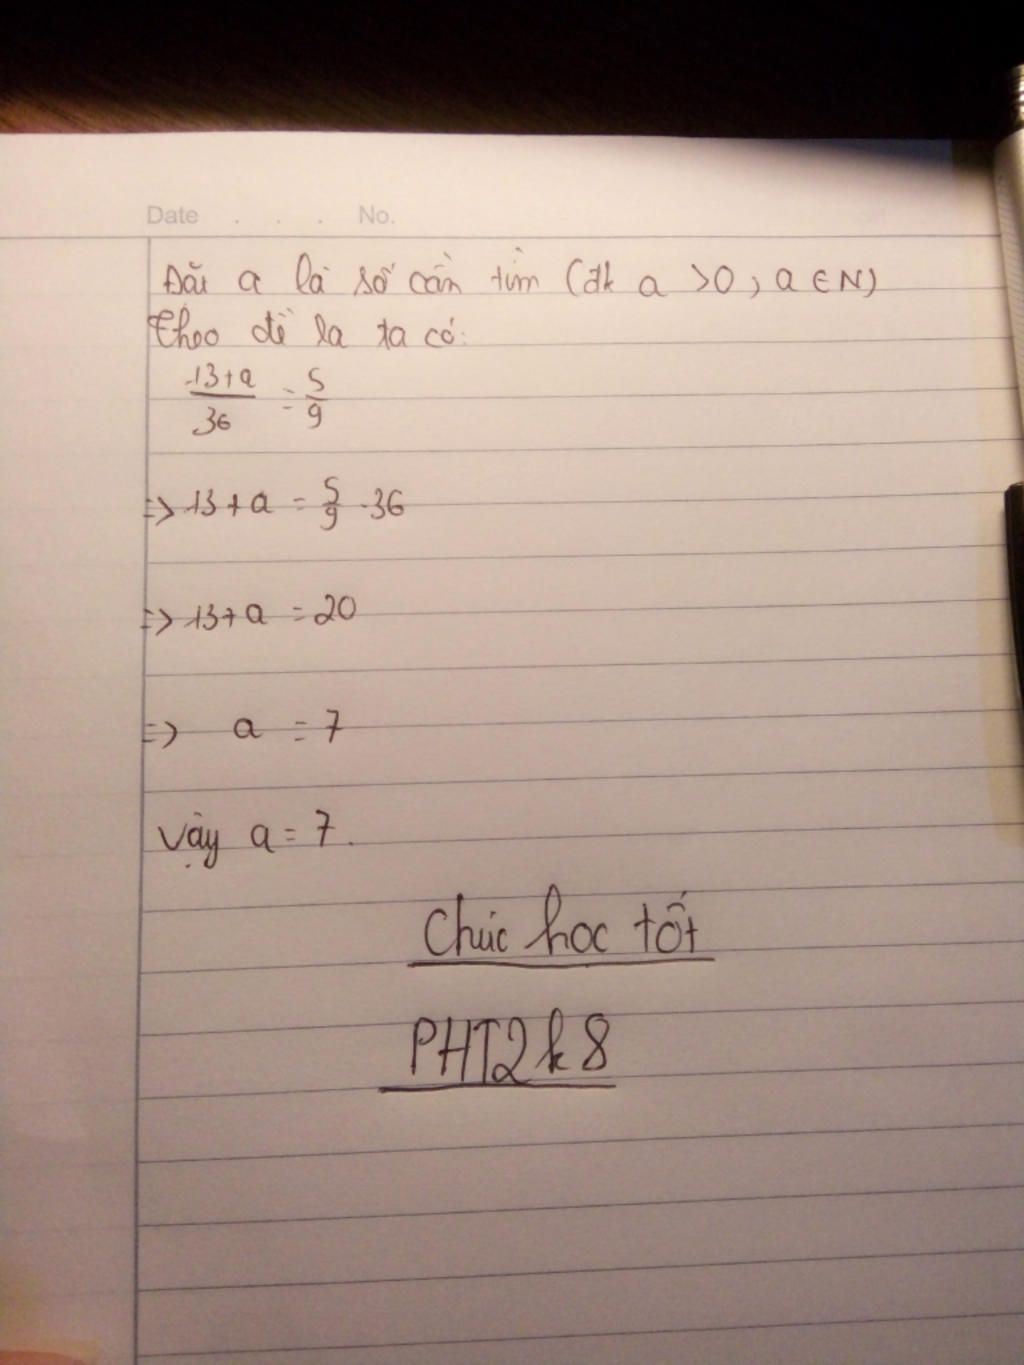 Date . . . No.
Đặt a là số cần tìm (đk a >0 ; a ∈ N)
Theo đề ra ta có:
13+a/36 = 5/9
=> 13+a = 5/9 . 36
=> 13+a = 20
=> a = 7
Vậy a = 7.
Chúc học tốt
PHT2k8